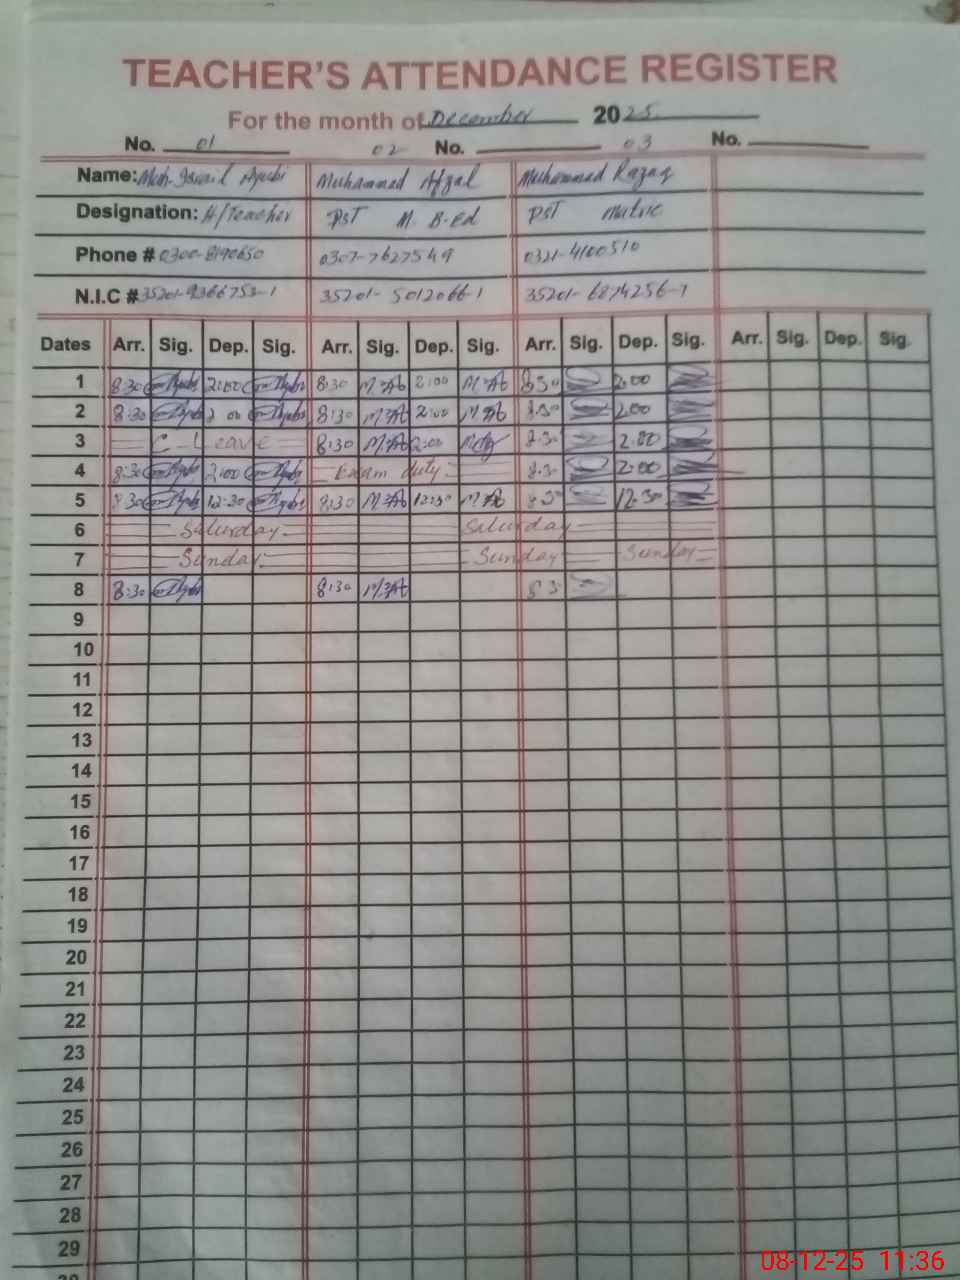 TEACHER'S ATTENDANCE REGISTER
For the month of December 2025
No. 01 02 No. 03 No.
Name: Moh. Ismail Ayubi Muhammad Afzal Muhammad Razaq
Designation: H/Teacher PST M. B-Ed PST Matric
Phone # 0300-8190650 0307-7627549 0321-4100510
N.I.C # 35201-9366753-1 35201-5012066-1 35201-6874256-7
Dates Arr. Sig. Dep. Sig. Arr. Sig. Dep. Sig. Arr. Sig. Dep. Sig. Arr. Sig. Dep. Sig.
1 8:30 2:00 8:30 M.Af 2:00 M.Af 8:30 2:00
2 8:30 2 00 8:30 M.Af 2:00 M.Af 8:30 2:00
3 C Leave 8:30 M.Af 2:00 8:30 2:00
4 8:30 2:00 Exam duty 8:30 2:00
5 8:30 12:30 8:30 M.Af 12:30 M.Af 8:30 12:30
6 Saturday Saturday
7 Sunday Sunday Sunday
8 8:30 8:30 M.Af 8:3
9
10
11
12
13
14
15
16
17
18
19
20
21
22
23
24
25
26
27
28
29
08-12-25 11:36